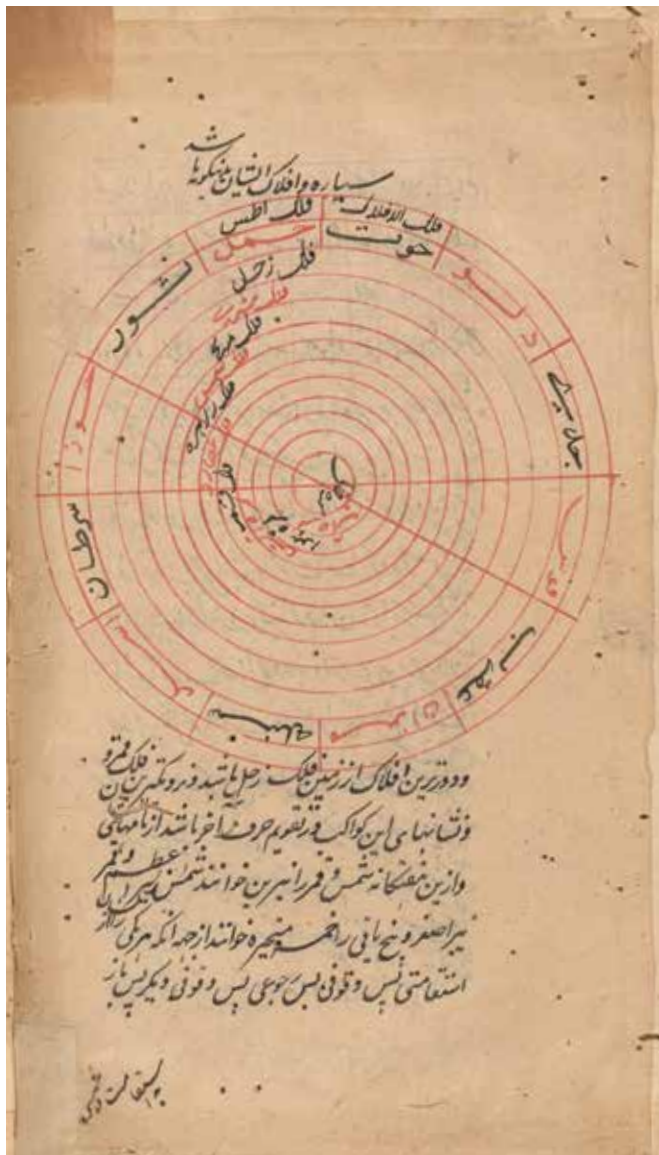 شد
سیاره و افلاک ایشان بدینگونه‌ها
فلک الافلاک
فلک اطلس
حوت
حمل
دلو
ثور
جدی
جوزا
قوس
سرطان
عقرب
اسد
میزان
سنبله
فلک زحل
فلک مشتری
فلک مریخ
فلک شمس
فلک زهره
فلک عطارد
فلک قمر
کره هوا
ودورترین افلاک از زمین فلک زحل باشد و نزدیکترین ایشان فلک قمر و
ونشانهای این کواکب در تقویم حرف آخر باشد از نامهای
وازین هفتگانه شمس و قمر را نیرین خوانند شمس نیر اعظم و قمر
نیر اصغر و پنج باقی را خمسه متحیره خوانند از جهه آنکه هر یکی را
استقامتی پس وقوفی پس رجوعی پس وقوفی دیگر پس باز